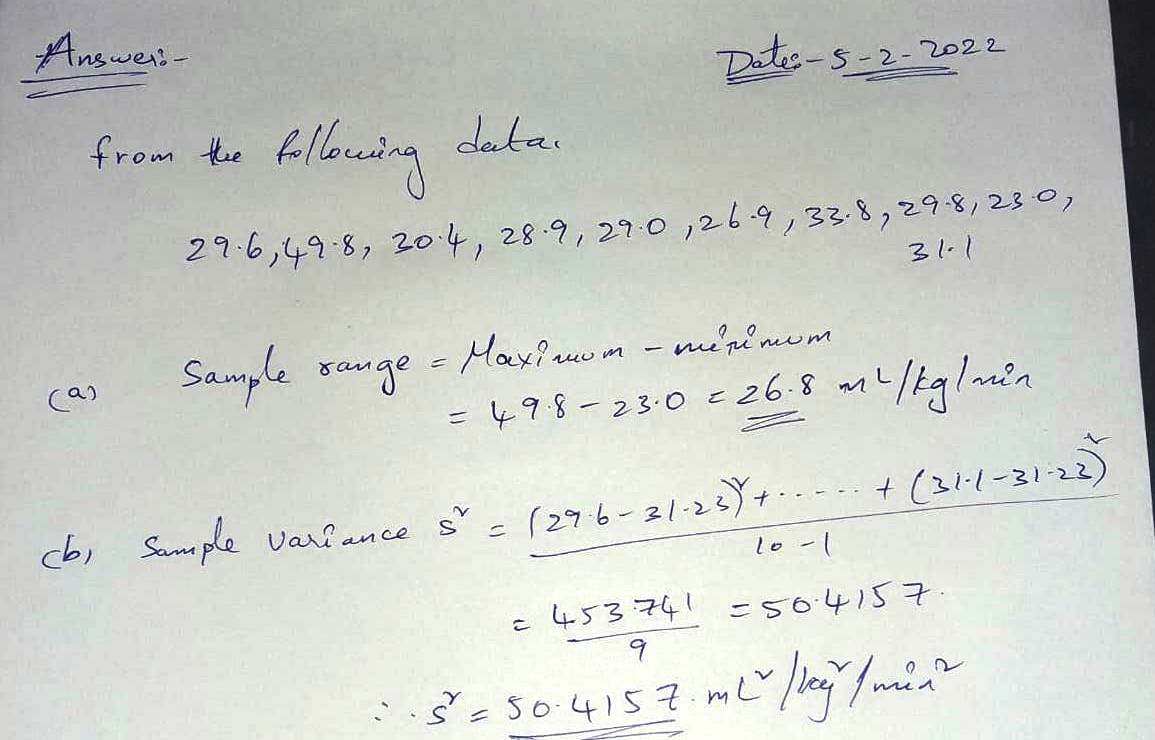 Answer:- Date:- 5-2-2022
from the following data.
29.6, 49.8, 30.4, 28.9, 29.0, 26.9, 33.8, 29.8, 23.0,
31.1
(a) Sample range = Maximum - minimum
= 49.8 - 23.0 = 26.8 mL/kg/min
(b) Sample variance s² = (29.6 - 31.23)² + ...... + (31.1 - 31.23)²
10 - 1
= 453.741 = 50.4157.
9
∴ s² = 50.4157. mL²/kg²/min²